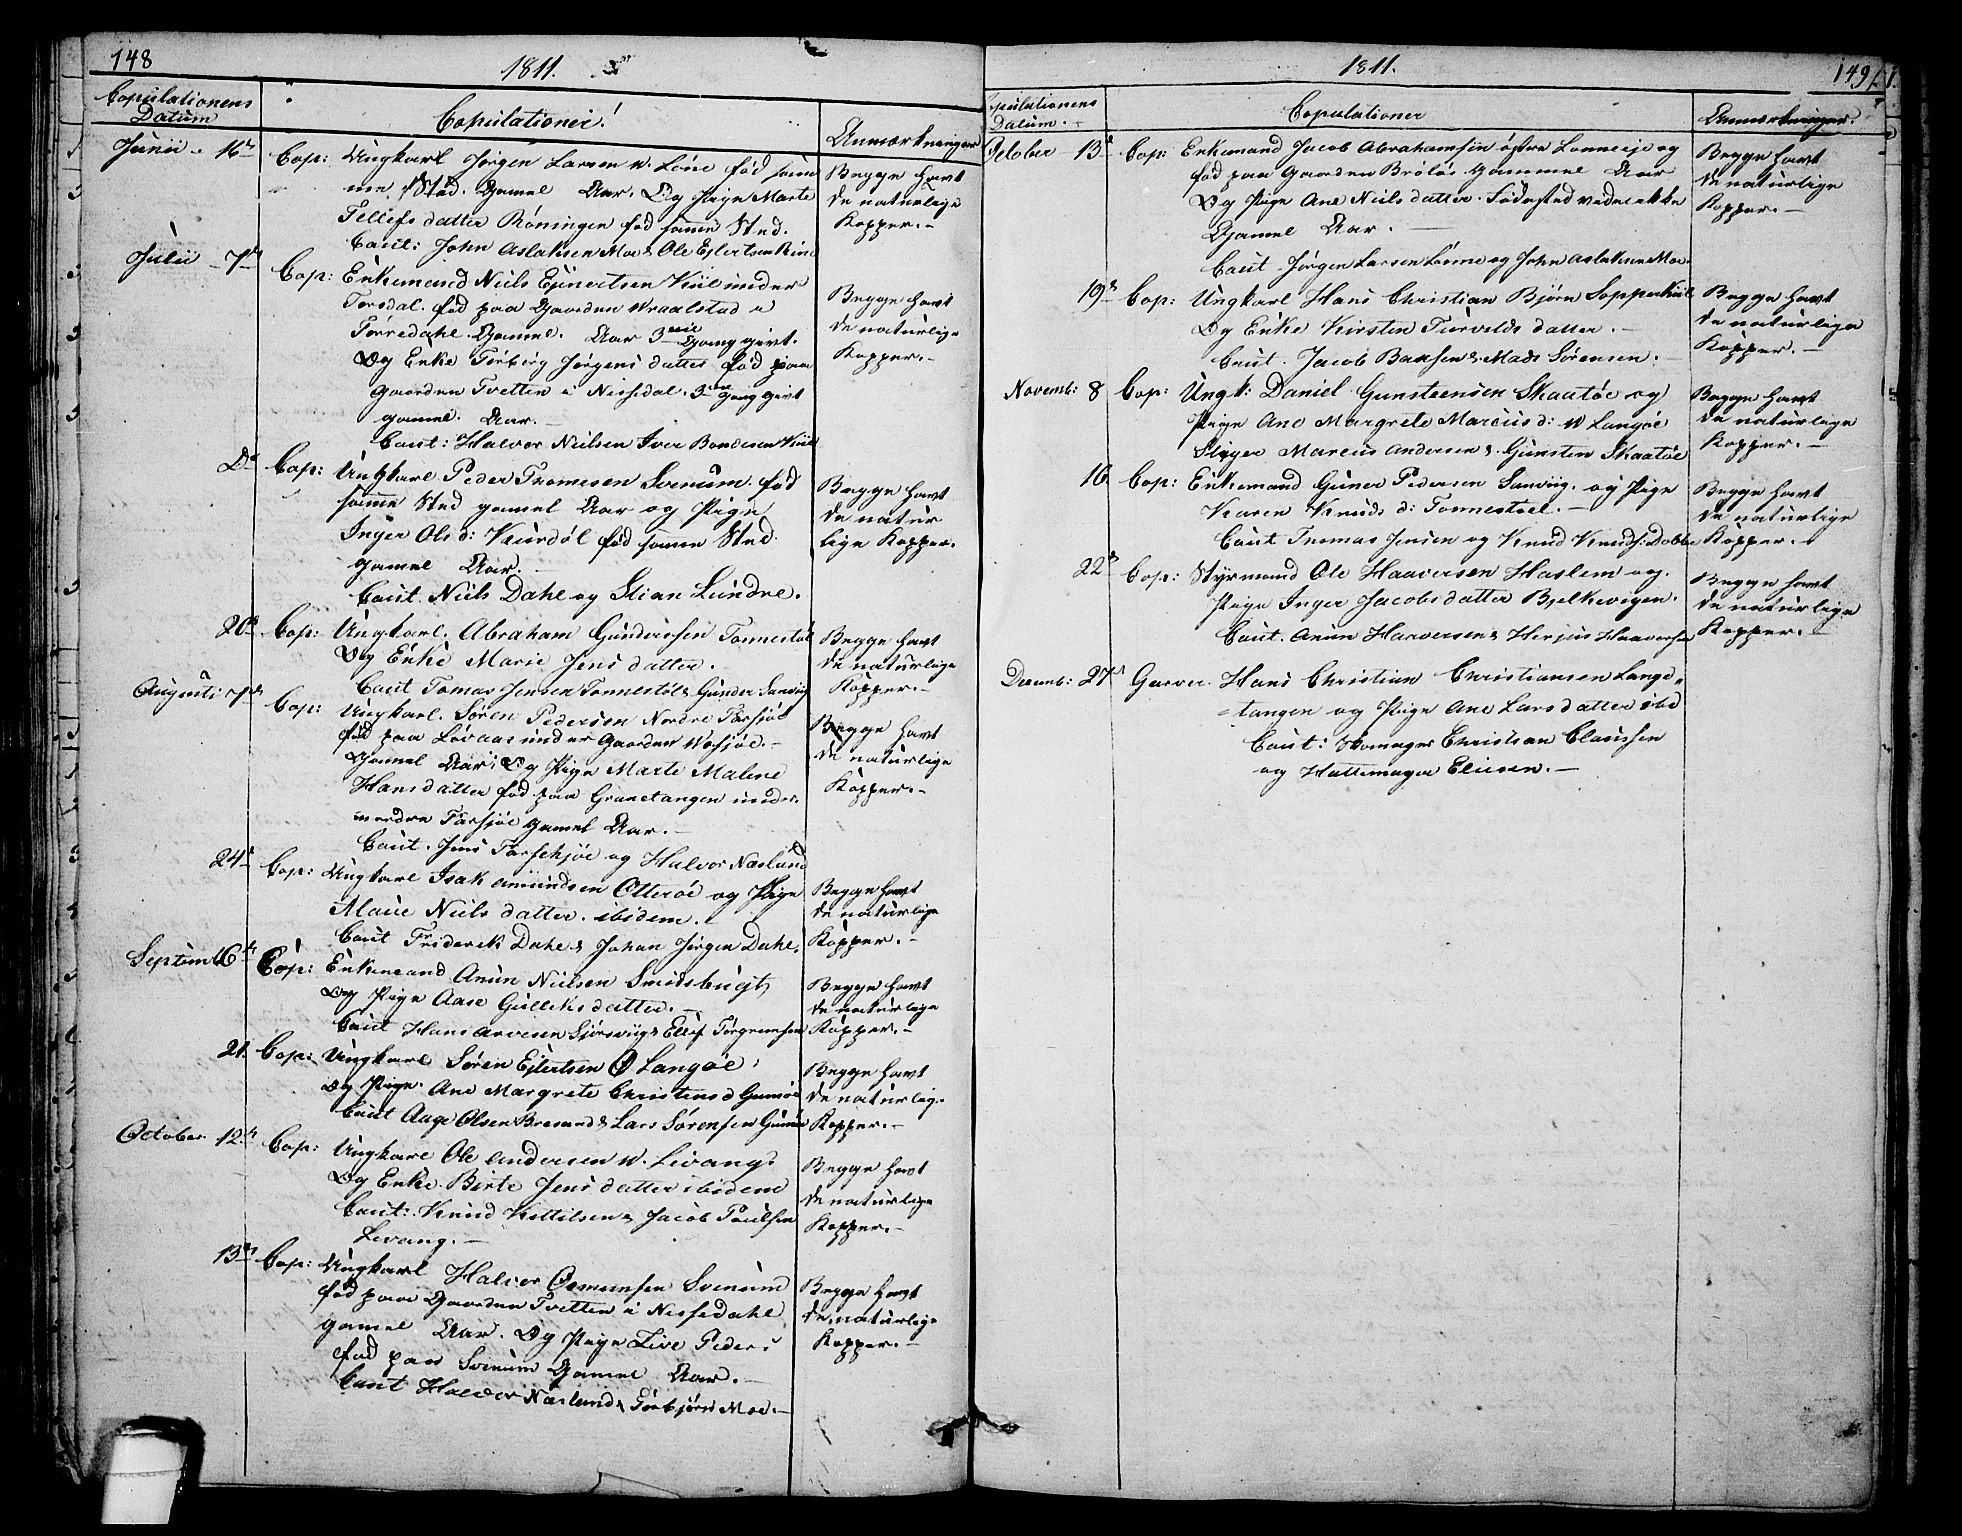 148
1811.
Copulationens Datum
Copulationer!
Anmærkninger
Junii - 16de Cop: Ungkarl Jørgen Larsen N. Løne fød samme
Sted. Gamel Aar. Og Pige Marte
Tellefs datter Røningen fød samme Sted.
Caut: John Aslaksen Moe & Ole Ejlertsen
Begge havt
de naturlige
Kopper.-
Julii - 7de Cop: Enkemand Niels Ejnertsen Kiil under
Torsdal. fød paa Gaarden Wraalstad i
Torredahl. Gamel. Aar 3die Gang givt.
Og Enke Torberg Jørgens datter fød paa
Gaarden Tvetten i Nissedal. 3die gang givt
gamel. Aar.
Caut: Halvor Nielsen Iver Bondesen Kiil
Begge havt
de naturlige
Kopper.-
Do Cop: Ungkarl Peder Thomesen Svenum. fød
samme Sted gamel Aar og Pige
Inger Ols d: Kurdøl fød samme Sted.
gamel Aar.
Caut. Niels Dahl og Stian Lundre.
Begge havt
de natur
lige Kopper.
20de Cop: Ungkarl. Abraham Gunderssen Tonnestøl
Og Enke Marie Jens datter.-
Caut Tomas Jensen Tonnestøl & Gunder Sanvig
Begge havt
de naturlige
Kopper.-
Augusti 7de Cop: Ungkarl. Søren Pedersen Nordre Farsjøe
fød paa Løvaas under Gaarden Wasjøe.-
Gamel Aar; Og Pige Marte Malene
Hansdatter fød paa Granetangen under
nordre Farsjøe gamel Aar.-
Caut. Jens Farsehjøe og Halvor Næslund
Begge havt
de naturlige
Kopper.-
24de Cop: Ungkarl Isak Amundsen Otterøe og Pige
Marie Niels datter. ibidem.
Caut Friderik Dahl & Johan Jørgen Dahl.
Begge havt
de naturlige
Kopper.-
Septemb 6te Cop: Enkemand Anun Nielsen Smidsbugt
Og Pige Aase Gulleks datter.-
Caut Hans Arvesen Sjørsvig & Ellef Torgrimsen
Begge havt
de naturlige
Kopper.-
21. Cop: Ungkarl Søren Ejlertsen Ø Langøe.
Og Pige. Ane Margrete Christens d Gumøe
Caut Aage Olsen Bresand & Lars Sørensen Gumøe
Begge havt
de naturlig.
Kopper.-
October 12te Cop: Ungkarl Ole Andersen N. Levang.
Og Enke Birte Jens datter ibidem
Caut: Knud Kittilsen & Jacob Poulsen
Levang.-
Begge havt
de naturlige
Kopper.-
13de Cop: Ungkarl Halvor Osmunsen Svenum
fød paa Gaarden Tvetten i Nissedahl
gamel Aar. Og Pige Live Peders
fød paa Svenum Gamel Aar.-
Caut Halvor Næslund & Torbjørn Moe.-
Begge havt
de naturlige
Kopper.-
1811.
149
Copulationens Datum.-
Copulationer
Anmærkninger.
October 13de Cop: Enkemand Jacob Abrahamsen østre Lonneie og
fød paa Gaarden Brøløs Gammel Aar
Og Pige Ane Niels datter. Fødested vedrække
Gamel Aar.-
Caut. Jørgen Larsen Lønne og John Aslaksen Moe
Begge havt
de naturlige
Kopper.-
19de Cop: Ungkarl Hans Christian Bjørn Sopperkiil
Og Enke Kirsten Turvelds datter.-
Caut. Jacob Baksen & Mads Sørensen.-
Begge havt
de naturlige
Kopper.-
Novemb: 8 Cop: Ungk: Daniel Gunsteensen Skaatøe og
Pige Ane Margrete Marcus d: N Langøe
Slejer Marcus Andersen & Gunsten Skaatøe
Begge havt
de naturlige
Kopper.-
16. Cop: Enkemand Guner Pedersen Sanvig. og Pige
Karen Knuds d: Tonnestøel.-
Caut Thomas Jensen og Knud Knuds: Dobbe
Begge havt
de naturlige
Kopper.-
22de Cop: Styrmand Ole Haaversen Haslem og.
Pige Inger Jacobs datter Bjelkevigen.
Caut. Anun Haaversen & Herjus Haaversen
Begge havt
de naturlige
Kopper.-
Decemb: 27de Garver. Hans Christian Christiansen Lange-
tangen og Pige Ane Lars datter ibid
Caut: Skomager Christian Claussen
og Hattemager Eliesen.-